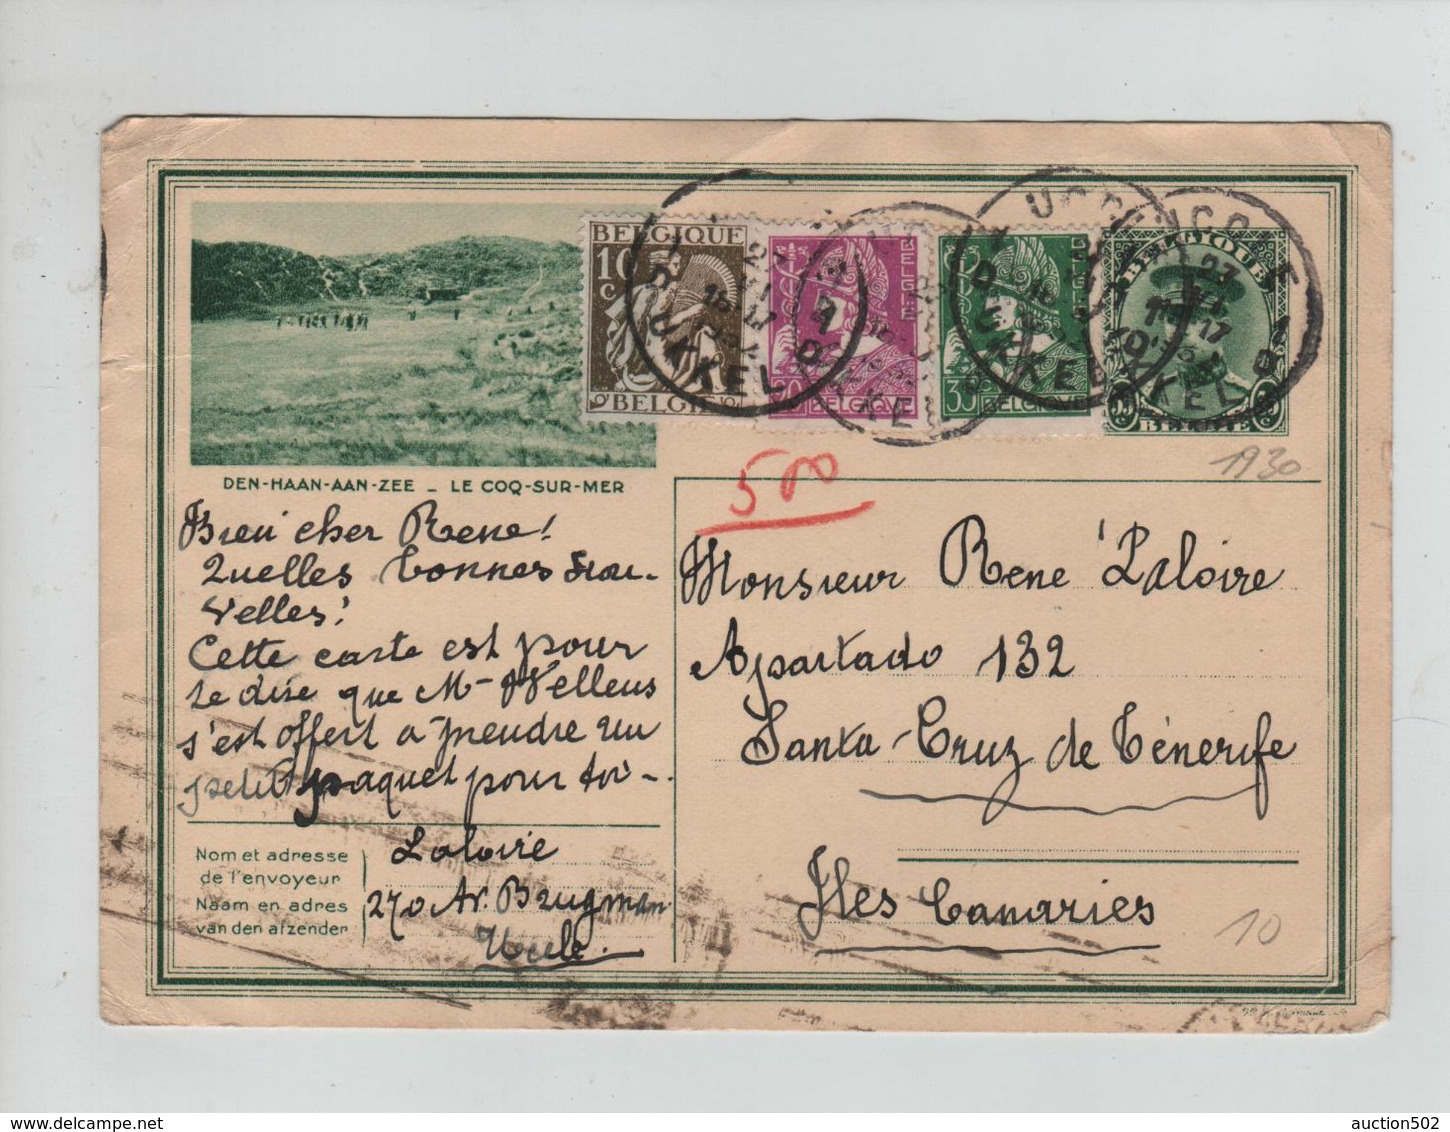 BELGIQUE
10
c
BELGIE
BELGIË
BELGIQUE
35
BELGIQUE
BELGIQUE
BELGIË
UCCLE
UKKEL
23
17
1
D
1930
DEN-HAAN-AAN-ZEE _ LE COQ-SUR-MER
500
Bien cher Rene!
Quelles bonnes nou-
velles!
Cette carte est pour
te dire que Mr Wellens
s'est offert a prendre un
petit paquet pour toi-.
Monsieur René Laloire
Apartado 132
Santa-Cruz de Ténerife
Iles Canaries
10
Nom et adresse
de l'envoyeur
Naam en adres
van den afzender
Laloire
270 Av. Brugman
Uccle.
auction502